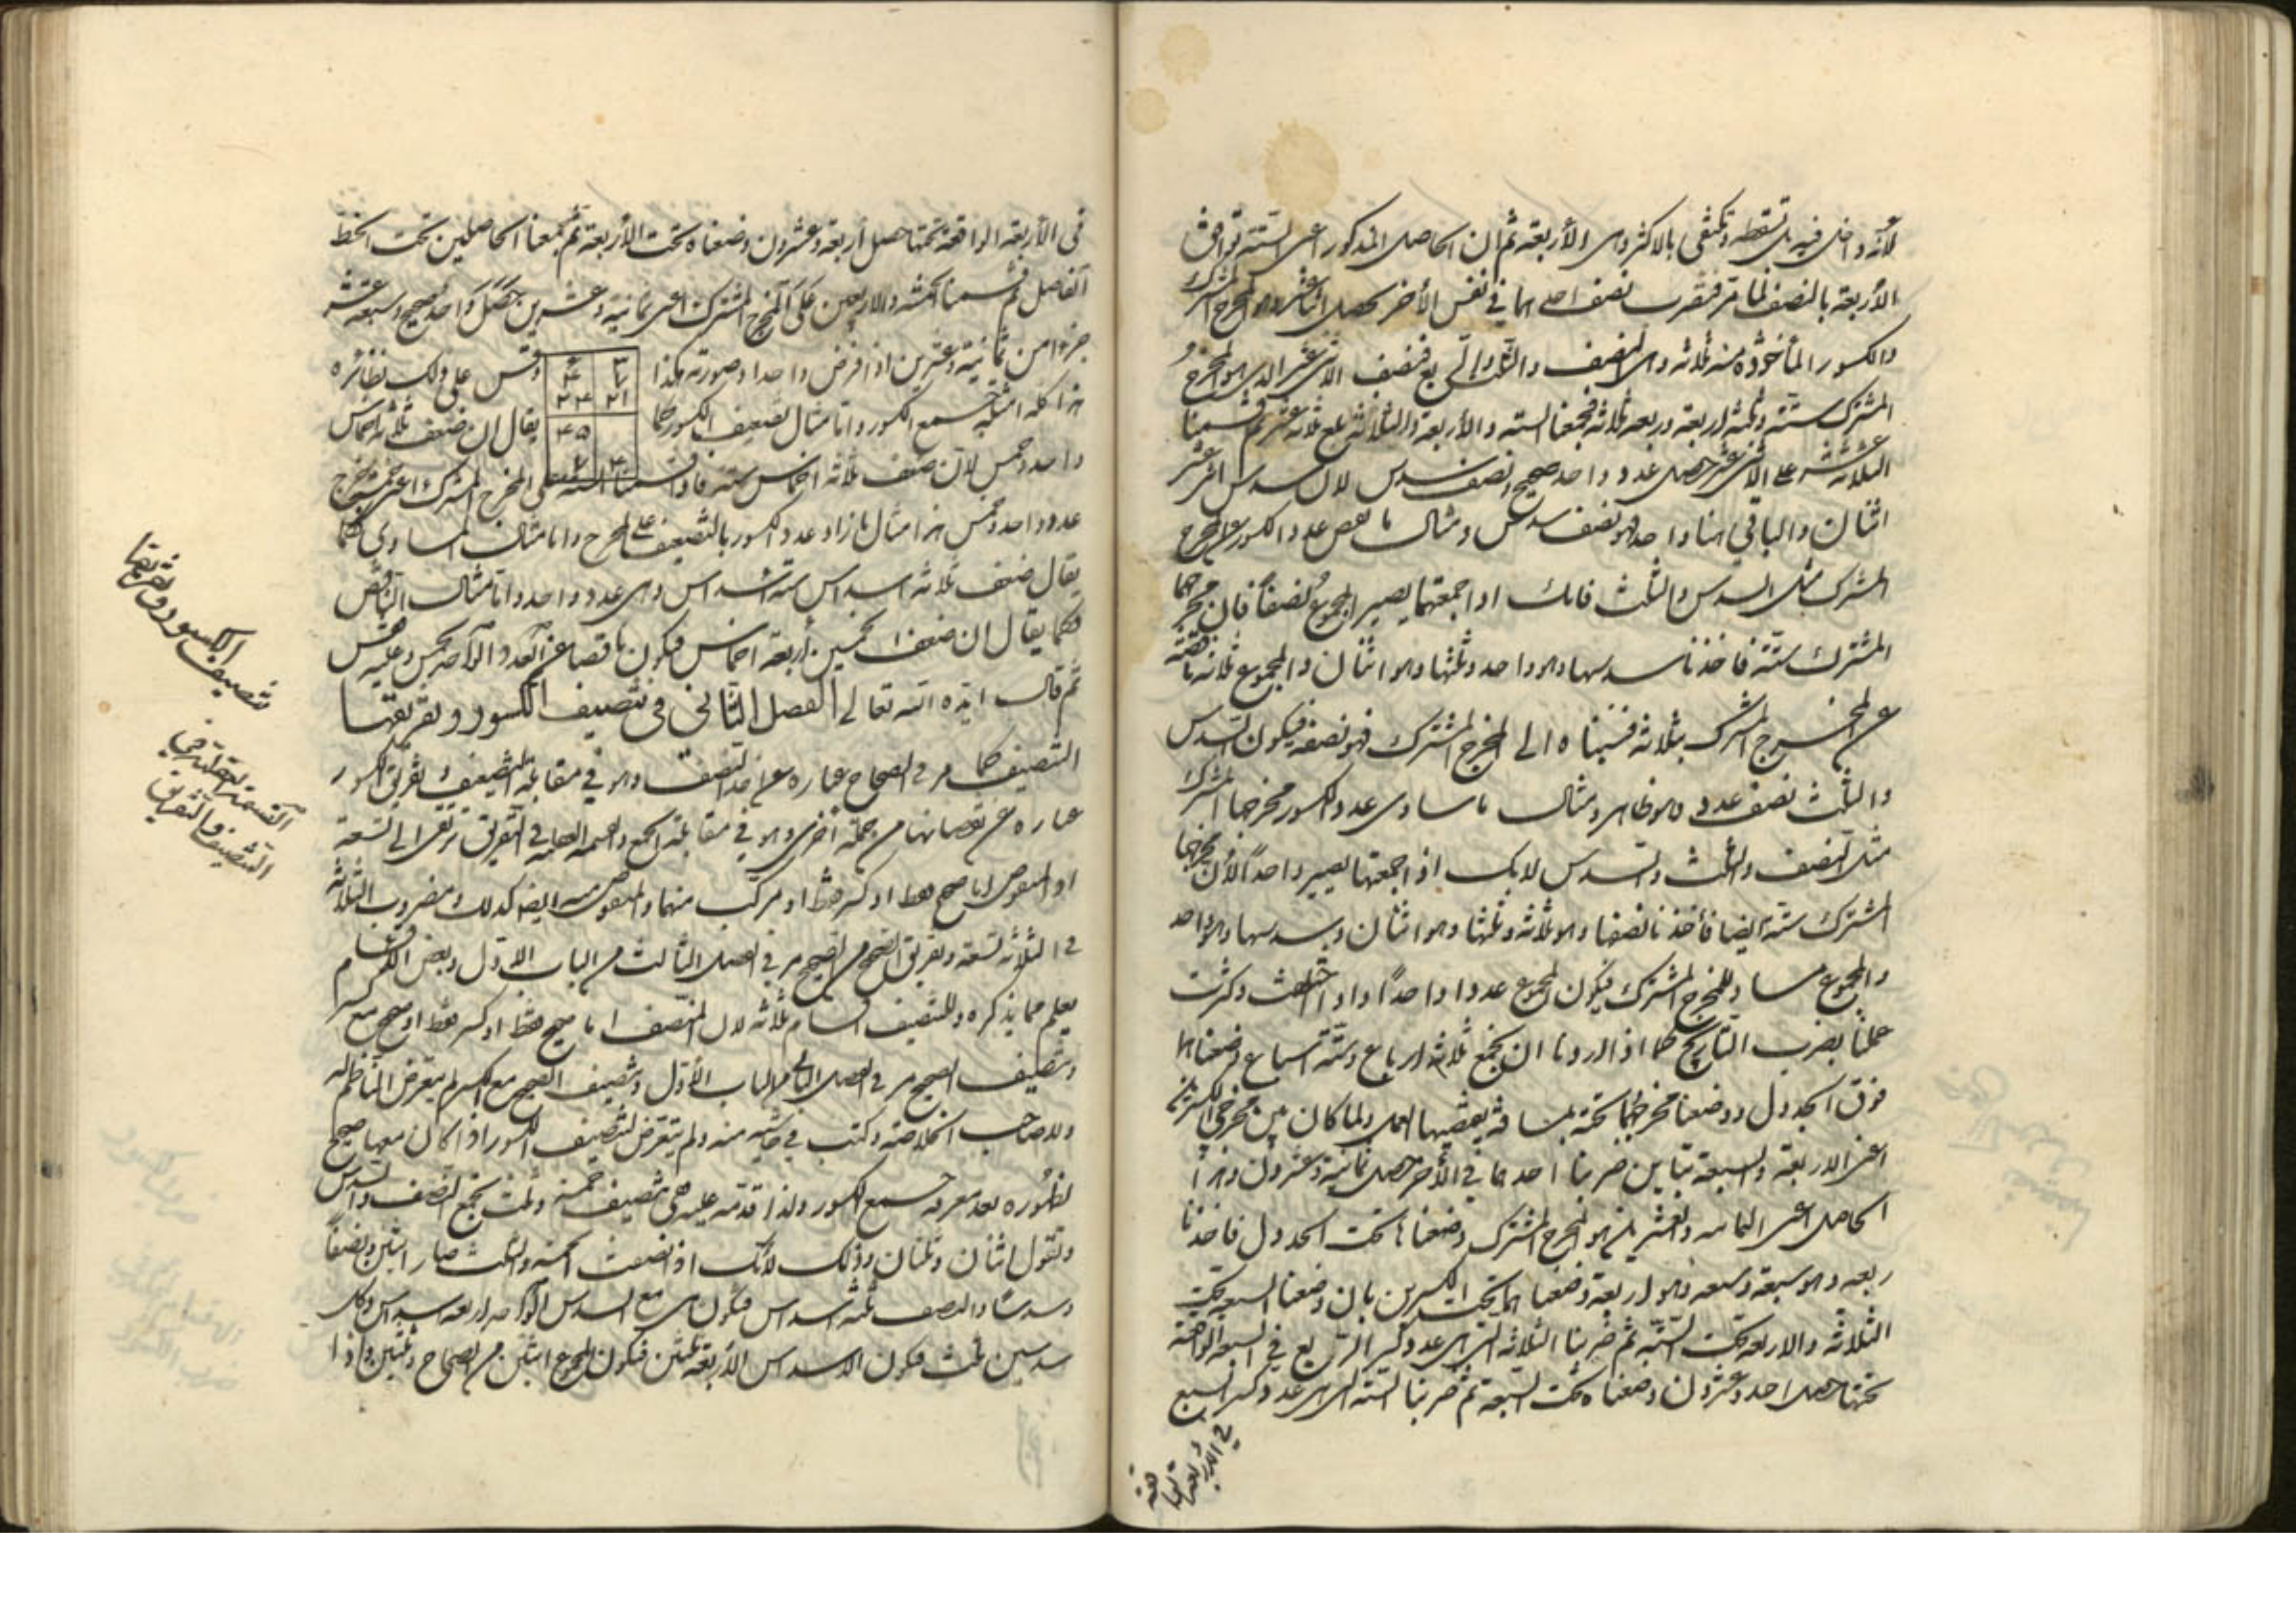 لأنه داخل فيه بل تسقطه وتكتفى بالاكثر وهى الأربعة ثم ان الحاصل المذكور اعنى الستة توافق
الأربعة بالنصف لما مر فتضرب نصف احدهما في نفس الأخر يحصل اثنا عشر وهو المخرج المشترك
والكسور المأخوذة منه ثلاثة وهى النصف والثلث والربع فنصف الاثنى عشر الذى هو المخرج
المشترك ستة وثلثه اربعة وربعه ثلاثة فجمعنا الستة والأربعة والثلاثة بلغ ثلاثة عشر ثم قسمنا
الثلاثة عشر على الاثنى عشر حصل عدد واحد صحيح ونصف سدس لان سدس اثنى عشر
اثنان والباقي هنا واحد فهو نصف سدس ومثال ما نقص عدد الكسور عن المخرج
المشترك مثل السدس والثلث فانك اذا جمعتهما يصير المجموع نصفاً فان مخرجهما
المشترك ستة فاخذنا سدسها وهو واحد وثلثها وهو اثنان والمجموع ثلاثة ناقصة
عن المخرج المشترك بثلاثة فنسبناه الى المخرج المشترك فهو نصفه فيكون السدس
والثلث نصف عدد وهو ظاهر ومثال ما ساوى عدد الكسور مخرجها المشترك
مثل النصف والثلث والسدس لانك اذا جمعتها يصير واحداً لأن مخرجها
المشترك ستة ايضا فأخذنا نصفها وهو ثلاثة وثلثها وهو اثنان وسدسها وهو واحد
والمجموع مساو للمخرج المشترك فيكون المجموع عددا واحداً واذا اختلفت وكثرت
عملنا بضرب التاريخ كما اذا اردنا ان نجمع ثلاثة ارباع وستة اسباع وضعناها
فوق الجدول ووضعنا مخرجهما تحته بمسافة يقتضيها العمل ولما كان بين مخرجى الكسرين
اعنى الاربعة والسبعة تباين ضربنا احدهما في الأخر حصل ثمانية وعشرون وهذا
الحاصل اعنى الثمانية والعشرين هو المخرج المشترك وضعناها تحت الجدول فاخذنا
ربعه وهو سبعة وسبعه وهو اربعة وضعناهما تحت الكسرين بان وضعنا السبعة تحت
الثلاثة والاربعة تحت الستة ثم ضربنا الثلاثة التى هى عدد كسر الربع في السبعة الواقعة
تحتها حصل احد وعشرون وضعناه تحت السبعة ثم ضربنا الستة التى هى عدد كسر السبع
في الأربعة
فى الأربعة الواقعة تحتها حصل أربعة وعشرون وضعناه تحت الأربعة ثم جمعنا الحاصلين تحت الخط
الفاصل ثم قسمنا الخمسة والاربعين على المخرج المشترك اعنى ثمانية وعشرين حصل واحد صحيح وسبعة عشر
جزءا من ثمانية وعشرين اذا فرض واحدا وصورته هكذا
وقس على ذلك نظائره
٢١
٢٤
٤٥
هذا كله امثلة جمع الكسور واما مثال تضعيف الكسور كما
يقال ان ضعف ثلثة اخماس
واحد وخمس لان ضعف ثلاثة اخماس ستة فاذا قسمنا الستة على المخرج المشترك اعنى خمسة يخرج
عدد واحد وخمس هذا مثال ما زاد عدد الكسور بالتضعيف على المخرج واما مثال المساوى كما
يقال ضعف ثلاثة اسداس ستة اسداس وهى عدد واحد واما مثال الناقص
كما يقال ان ضعف الخمسين أربعة اخماس فيكون ناقصا عن العدد الواحد بخمس وعليه فقس
ثم قال ايده الله تعالى الفصل الثانى فى تنصيف الكسور وتفريقها
التنصيف كما مر في الصحاح عبارة عن اخذ النصف وهو في مقابلة التضعيف وتفريق الكسور
عبارة عن نقصانها من جهة اخرى وهو في مقابلة الجمع والقسمة العقلية في التفريق ترتقى الى تسعة
اذ المنقوص اما صحيح فقط او كسر فقط او مركب منهما والمنقوص منه ايضا كذلك ومضروب الثلاثة
في الثلاثة تسعة وتفريق الصحيح من الصحيح مر في الفصل الثالث من الباب الاول وبعض الاقسام
يعلم مما يذكره وللتنصيف اقسام ثلاثة لان المنصف اما صحيح فقط او كسر فقط او صحيح مع كسر
وتنصيف الصحيح مر في الفصل الثانى من الباب الأول وتنصيف الصحيح مع الكسر لم يتعرض الناظم له
ولا صاحب الخلاصة وكتب في حاشيته منه ولم يتعرض لتنصيف الكسور اذا كان معها صحيح
لظهوره بعد معرفة جمع الكسور ولذا قدمته عليه ففى تنصيف خمسة وثلث تجمع النصف والسدس
وتقول اثنان وثلثان وذلك لأنك اذا نصفت الخمسة والثلث صار اثنين ونصفاً
وسدسا والنصف ثلثة اسداس فيكون هى مع السدس الواحد اربعة اسداس وكل
سدسين ثلث فيكون الاسداس الأربعة ثلثين فيكون المجموع اثنين من الصحاح وثلثين واذا
تنصيف الكسور وتفريقها
القسمة العقلية في
التنصيف والتفريق